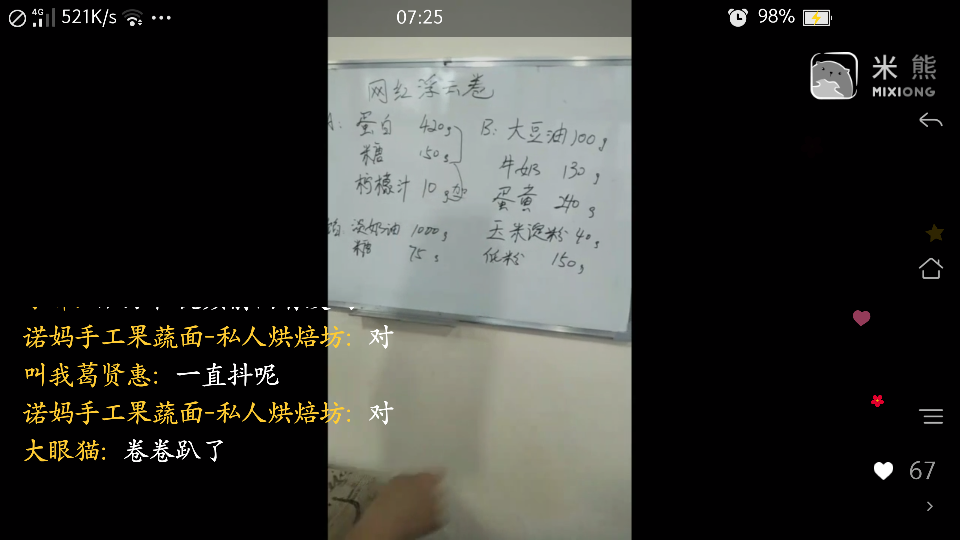 4G 521K/s 07:25 98%
米熊
MIXIONG
网红浮云卷
蛋白 420g
糖 150g
柠檬汁 10g
B: 大豆油 100g
牛奶 130g
蛋黄 240g
玉米淀粉 40g
低粉 150g
淡奶油 1000g
糖 75g
诺妈手工果蔬面-私人烘焙坊: 对
叫我葛贤惠: 一直抖呢
诺妈手工果蔬面-私人烘焙坊: 对
大眼猫: 卷卷趴了
67